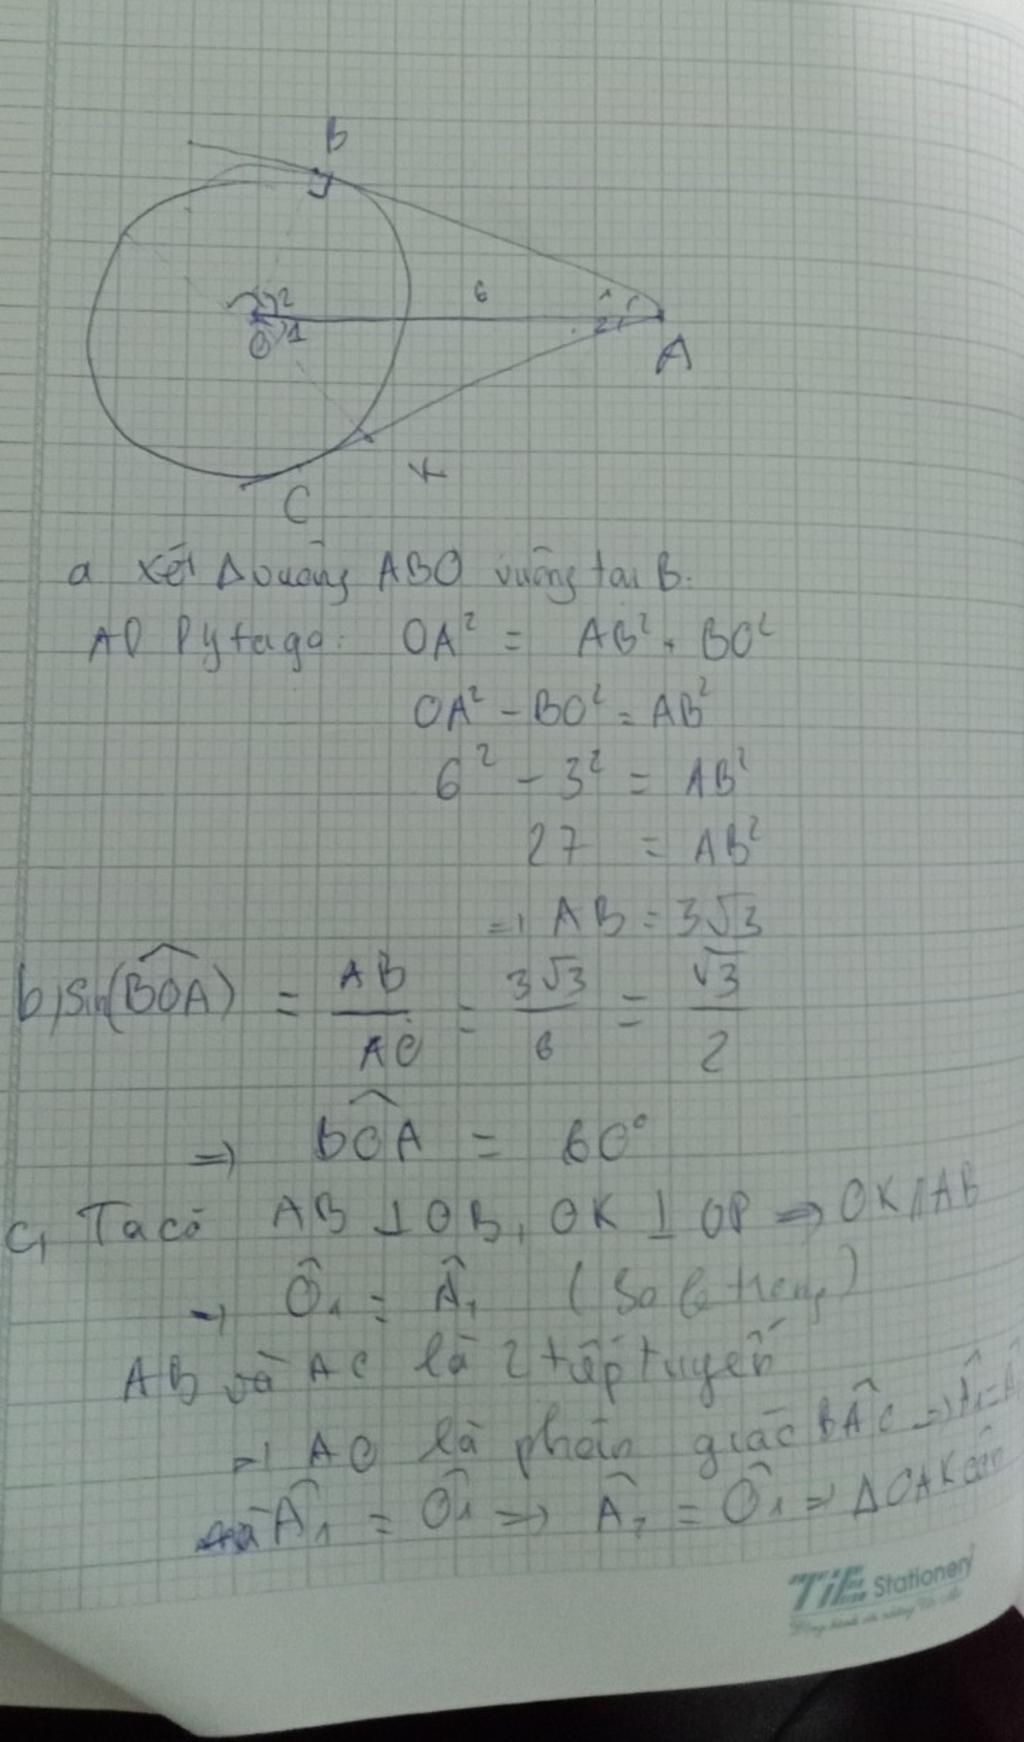 B
2
6
1
2
1
O
A
K
C
a xét Δ vuông ABO vuông tại B.
AD Pytago: OA² = AB² + BO²
OA² - BO² = AB²
6² - 3² = AB²
27 = AB²
=> AB = 3√3
b, sin(BOA) = AB/AO = 3√3/6 = √3/2
=> BOA = 60°
c, Ta có AB ⊥ OB, OK ⊥ OB => OK // AB
=> Ô₁ = Â₁ (so le trong)
AB và AC là 2 tiếp tuyến
=> AO là phân giác BÂC => Â₁ =
mà Â₁ = Ô₁ => Â₂ = Ô₁ => ΔOAK cân
TiE Stationery